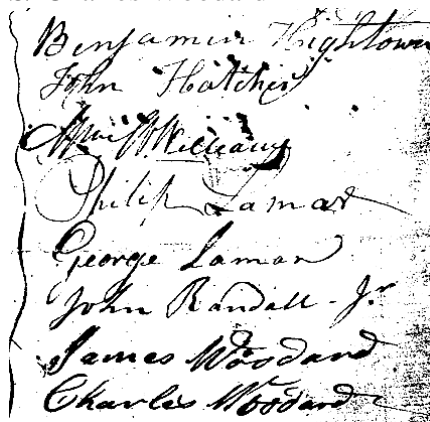 Benjamin Hightowr
John Hatcher
Williams
Philip Lamar
George Lamar
John Randall - Jr
James Woodard
Charles Woodard